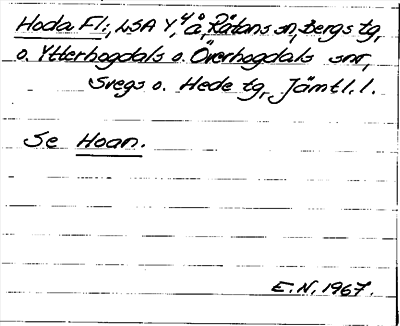 Hoda Fl:, LSA Y, 4 å, Råtans sn, Bergs tg,
o. Ytterhogdals o. Överhogdals snr,
Svegs o. Hede tg, Jämtl. l.
Se Hoan.
E.N. 1967.